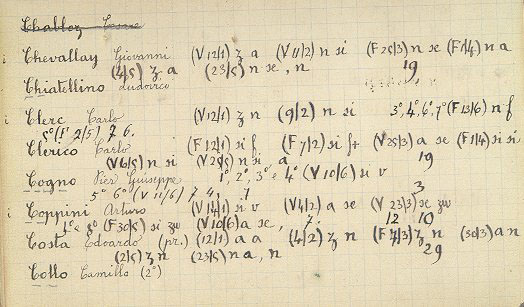 Challoz Cesare
i Chevallay Giovanni (V12/1) z a (V11/2) n si (F25/3) n se (F1/4) n a
(4/5) z a (23/5) n se, n 19
Chiatellino Ludovico
i Clerc Carlo (V12/1) z n (9/2) n si 3°, 4°, 6°, 7° (F13/6) n f
5° (F 2/5) 7 6.
Clerico Carlo (F12/1) si f (F7/2) si f+ (V25/3) a se (F1/4) si si
(V6/5) n si (V20/5) n si a 19
Cogno Pier Giuseppe 1°, 2°, 3° e 4° (V10/6) si v
5° 6° (V11/6) 7 4, 7 3
i Coppini Arturo (V14/1) si v (V4/2) a se (V23/3) se zw
1° e 8° (F30/5) si zw (V10/6) a se, 7. 12 10
Costa Edoardo (pr.) (12/1) a a (4/2) z n (F7/3) z n (30/3) a n
(2/5) z n (23/5) n a, n 29
Cotto Camillo (2°)